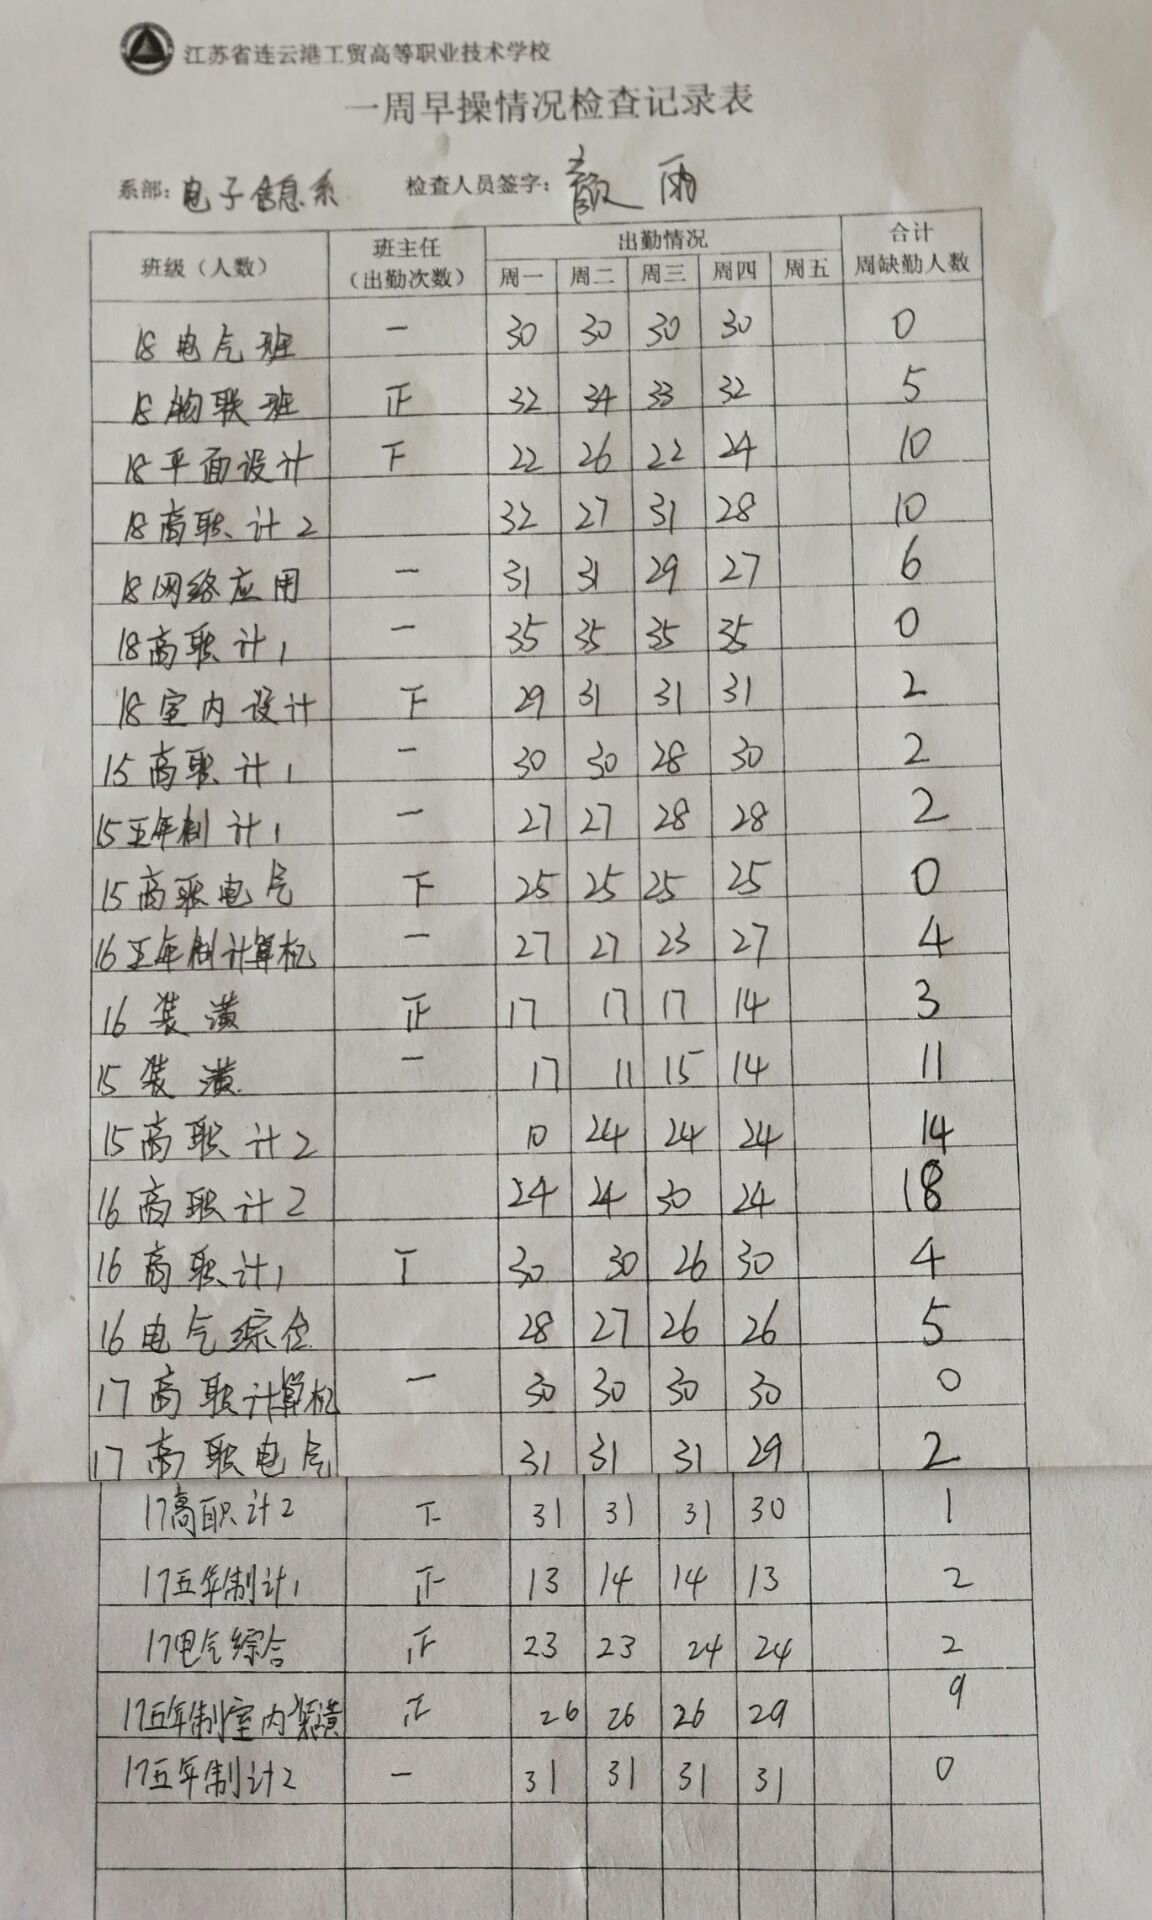 江苏省连云港工贸高等职业技术学校
一周早操情况检查记录表
系部: 电子信息系 检查人员签字: 雨
班级（人数） 班主任（出勤次数） 出勤情况 合计周缺勤人数
周一 周二 周三 周四 周五
18电气班 一 30 30 30 30 0
18物联班 正 32 34 33 32 5
18平面设计 下 22 26 22 24 10
18高职计2 32 27 31 28 10
18网络应用 一 31 31 29 27 6
18高职计1 一 35 35 35 35 0
18室内设计 下 29 31 31 31 2
15高职计1 一 30 30 28 30 2
15五年制计1 一 27 27 28 28 2
15高职电气 下 25 25 25 25 0
16五年制计算机 一 27 27 23 27 4
16装潢 正 17 17 17 14 3
15装潢 一 17 11 15 14 11
15高职计2 10 24 24 24 14
16高职计2 24 24 30 24 18
16高职计1 丅 30 30 26 30 4
16电气综合 28 27 26 26 5
17高职计算机 一 30 30 30 30 0
17高职电气 31 31 31 29 2
17高职计2 下 31 31 31 30 1
17五年制计1 正 13 14 14 13 2
17电气综合 正 23 23 24 24 2
17五年制室内装潢 正 26 26 26 29 9
17五年制计2 一 31 31 31 31 0